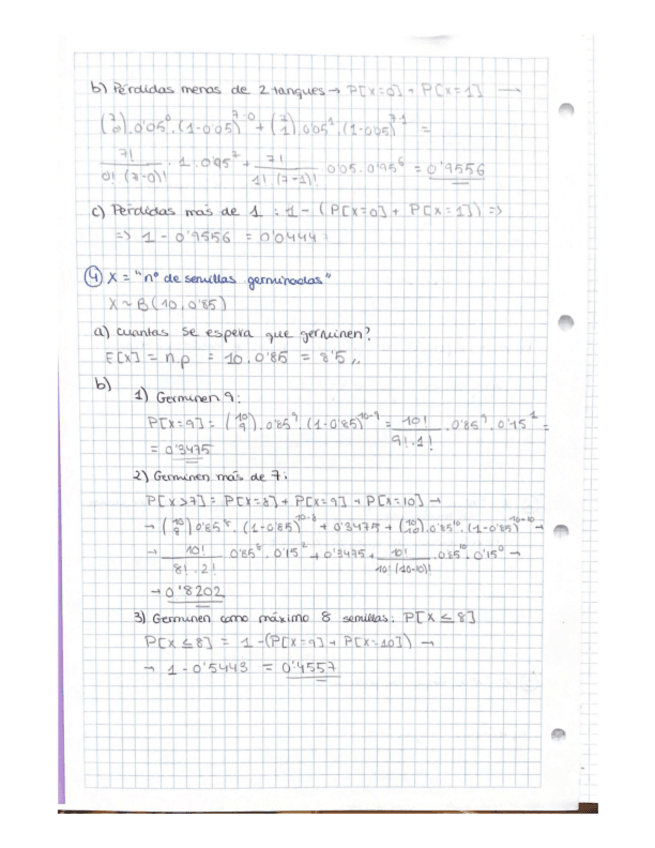 b) Pérdidas menos de 2 tanques → P[X=0] + P[X=1] →
(7 0).0'05⁰.(1-0'05)⁷⁻⁰ + (7 1).0'05¹.(1-0'05)⁷⁻¹ =
7!/0!(7-0)! . 1 . 0'95⁷ + 7!/1!.(7-1)! . 0'05 . 0'95⁶ = 0'9556
c) Pérdidas más de 1 : 1 - (P[X=0] + P[X=1]) =>
=> 1 - 0'9556 = 0'0444
④ X = "nº de semillas germinadas"
X ~ B(10, 0'85)
a) cuantas se espera que germinen?
E[X] = n.p = 10 . 0'85 = 8'5
b)
1) Germinen 9:
P[X=9] = (10 9).0'85⁹.(1-0'85)¹⁰⁻⁹ = 10!/9!.1! . 0'85⁹ . 0'15¹ =
= 0'3475
2) Germinen más de 7:
P[X>7] = P[X=8] + P[X=9] + P[X=10] →
→ (10 8) 0'85⁸ . (1-0'85)¹⁰⁻⁸ + 0'3475 + (10 10).0'85¹⁰.(1-0'85)¹⁰⁻¹⁰ →
→ 10!/8!.2! . 0'85⁸ . 0'15² + 0'3475 + 10!/10!(10-10)! . 0'85¹⁰ . 0'15⁰ →
→ 0'8202
3) Germinen como máximo 8 semillas: P[X ≤ 8]
P[X ≤ 8] = 1 - (P[X=9] + P[X=10]) →
→ 1 - 0'5443 = 0'4557